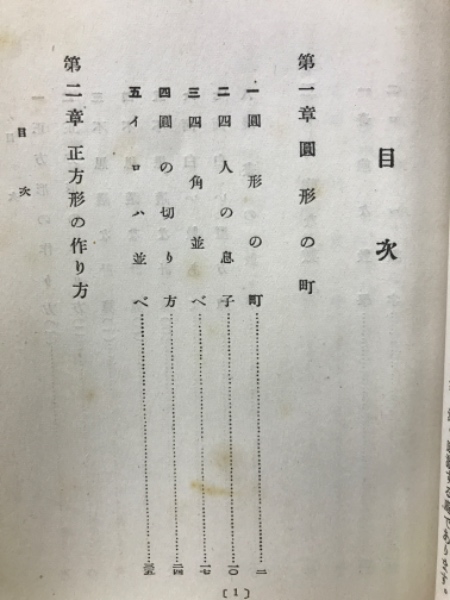 目次
第一章 圓形の町
一 圓形の町……二
二 四人の息子……一〇
三 四角並べ……一七
四 圓の切り方……二四
五 イロハ並べ……三五
第二章 正方形の作り方
目次
〔1〕